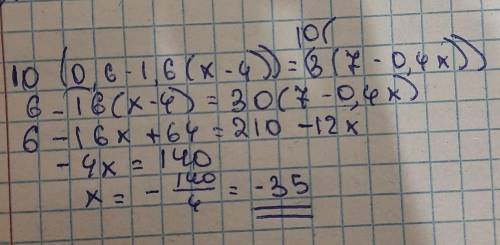 10(
10 (0,6-1,6(x-4))=(3(7-0,4x))
6-16(x-4)=30(7-0,4x)
6-16x+64=210-12x
-4x=140
x=-140/4=-35